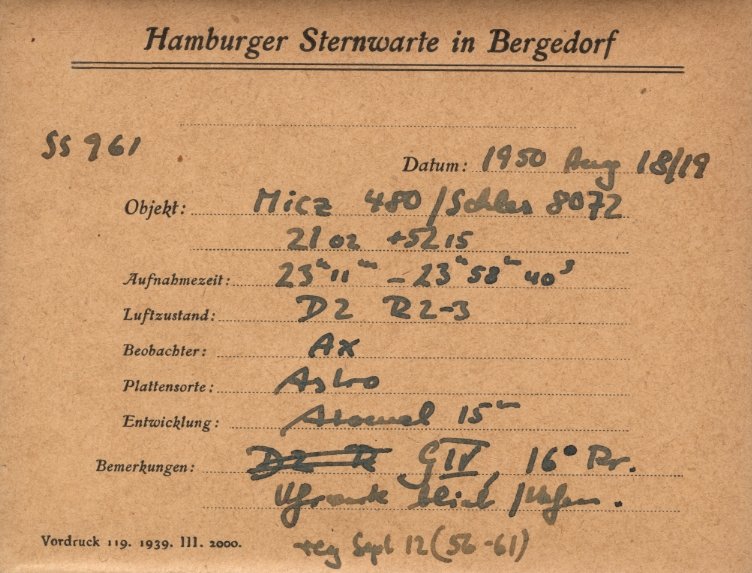 Hamburger Sternwarte in Bergedorf
SS 961
Datum: 1950 Aug 18/19
Objekt: Micz 480 / 8072
21 02 +52 15
Aufnahmezeit: 23ʰ11ᵐ – 23ʰ58ᵐ40ˢ
Luftzustand: D2 R2-3
Beobachter: Ax
Plattensorte: Astro
Entwicklung: 15ᵐ
Bemerkungen: G IV, 16° Pr.
Uhrwerk blieb
Vordruck 119. 1939. III. 2000.
reg Sept 12 (56-61)